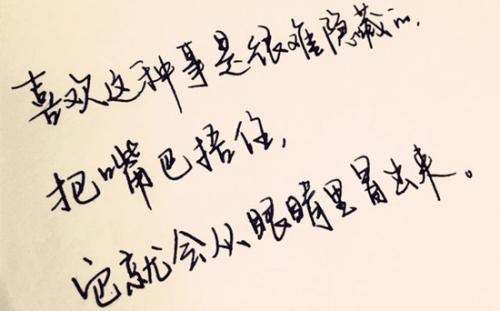 喜欢这种事是很难隐藏的，
把嘴巴捂住，
它就会从眼睛里冒出来。